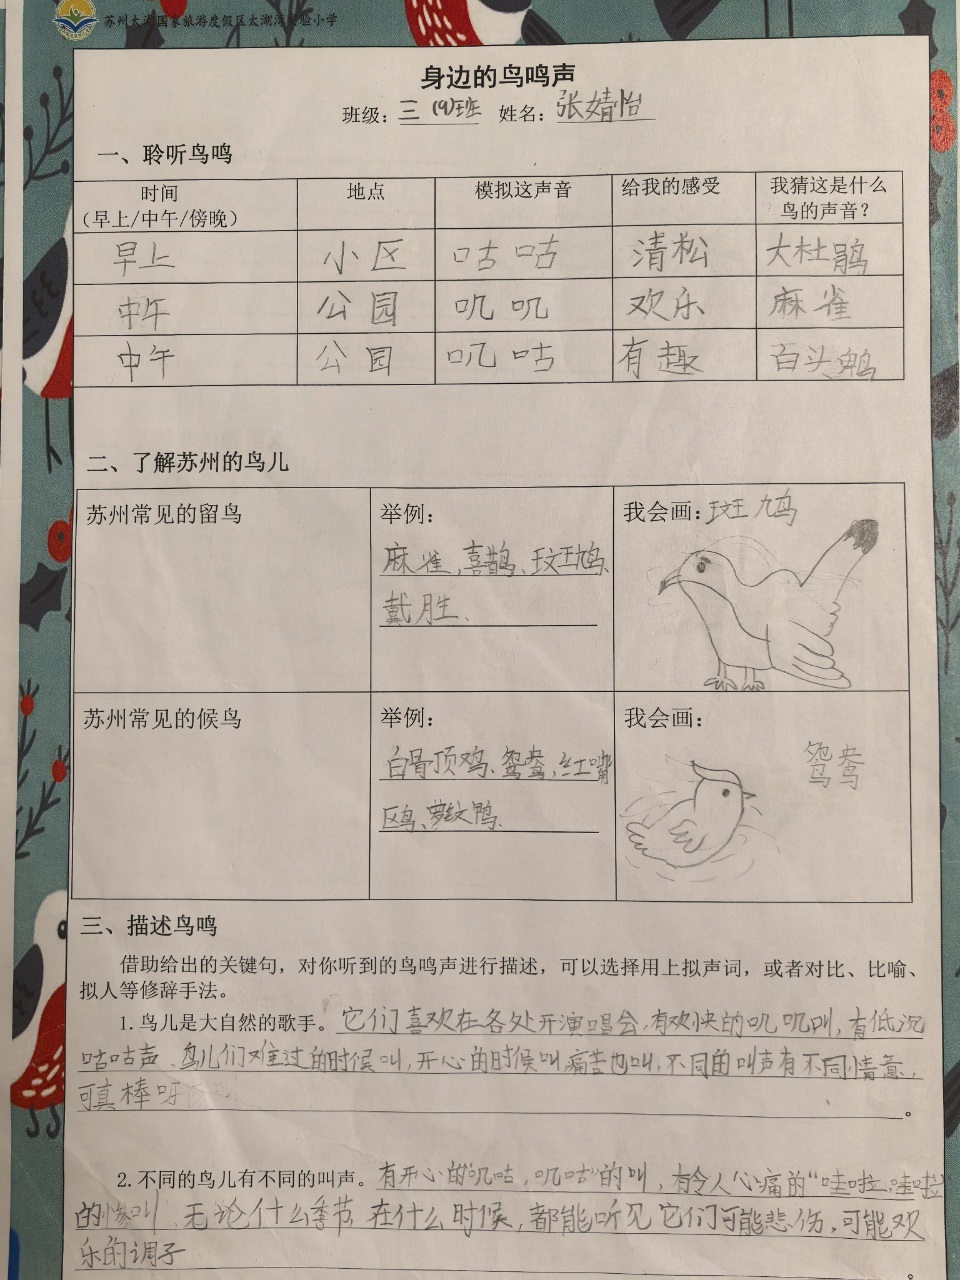 苏州太湖国家旅游度假区太湖湾实验小学
身边的鸟鸣声
班级：三(9)班 姓名：张婧怡
一、聆听鸟鸣
时间 地点 模拟这声音 给我的感受 我猜这是什么
（早上/中午/傍晚） 鸟的声音？
早上 小区 咕咕 清松 大杜鹃
中午 公园 叽叽 欢乐 麻雀
中午 公园 叽咕 有趣 百头鹎
二、了解苏州的鸟儿
苏州常见的留鸟 举例： 我会画：斑鸠
麻雀、喜鹊、斑鸠、
戴胜、
苏州常见的候鸟 举例： 我会画：
白骨顶鸡、鸳鸯、红嘴 鸳鸯
鸥、萝纹鸭、
三、描述鸟鸣
借助给出的关键句，对你听到的鸟鸣声进行描述，可以选择用上拟声词，或者对比、比喻、
拟人等修辞手法。
1. 鸟儿是大自然的歌手。它们喜欢在各处开演唱会，有欢快的叽叽叫，有低沉
咕咕声、鸟儿们难过的时候叫，开心的时候叫，痛苦也叫，不同的叫声有不同情意，
可真棒呀 。
2. 不同的鸟儿有不同的叫声。有开心的“叽咕，叽咕”的叫，有令人心痛的“哇啦，哇啦”
的惨叫、无论什么季节 在什么时候，都能听见它们可能悲伤，可能欢
乐的调子 。